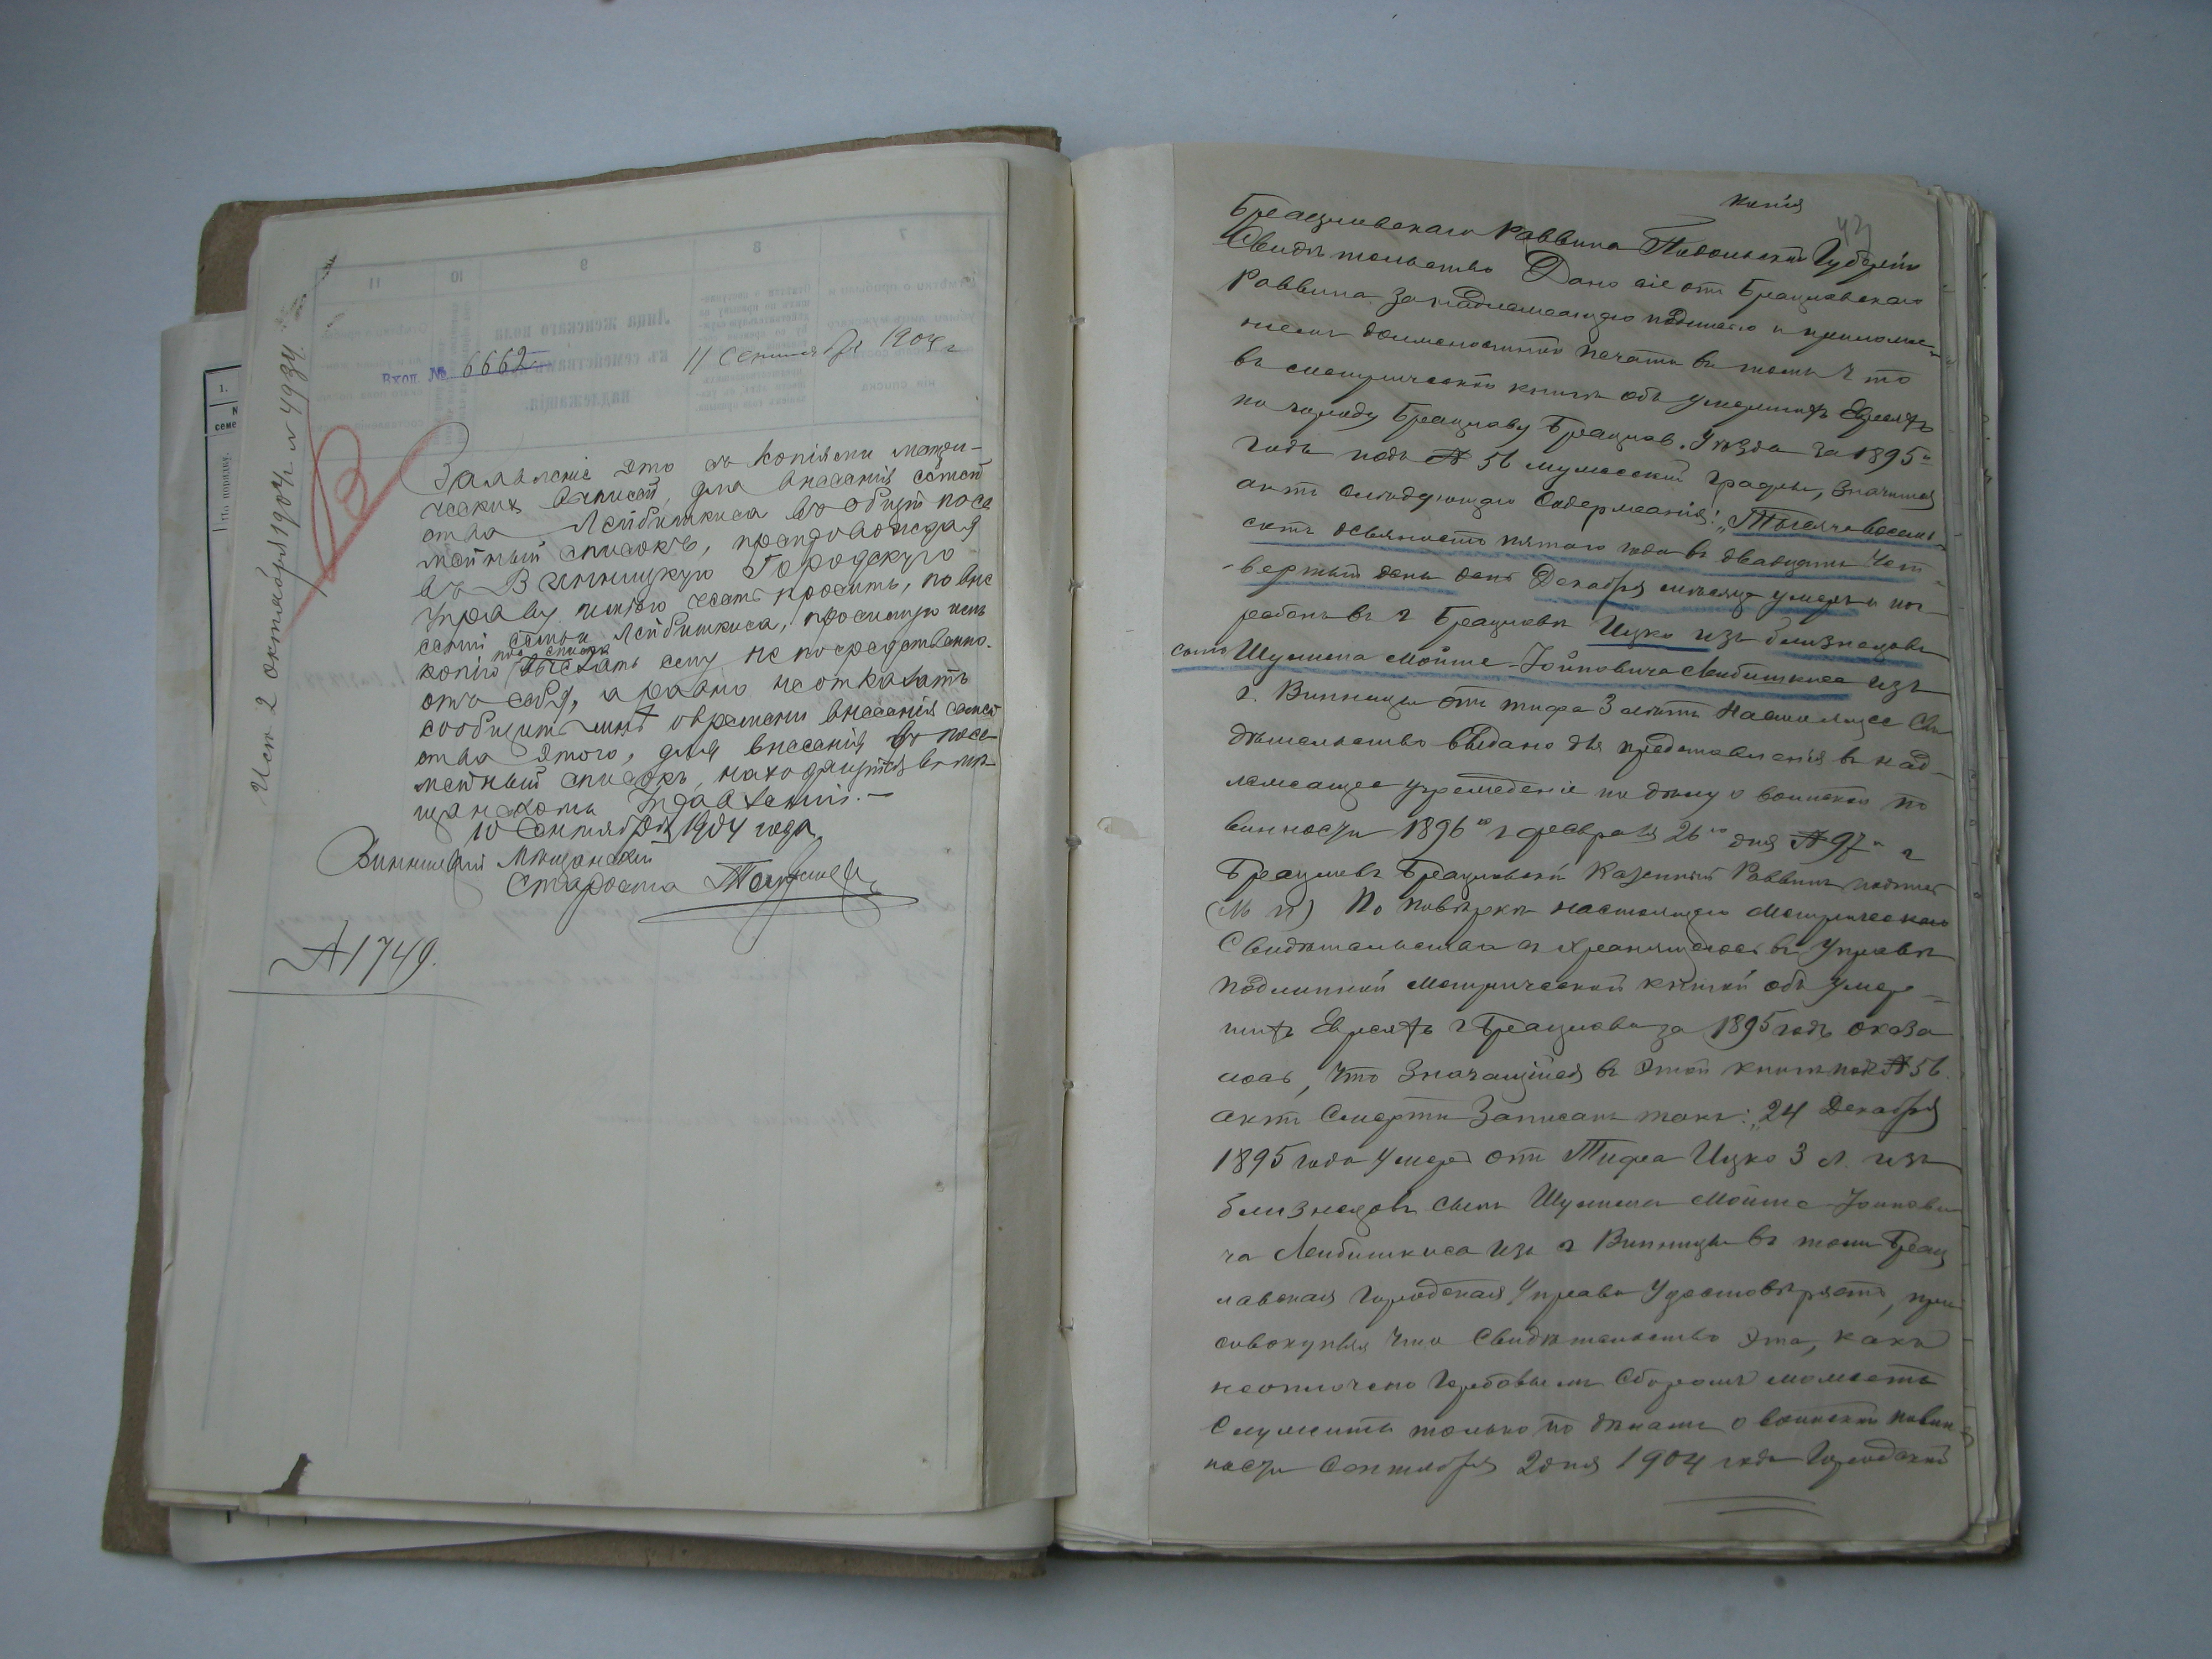 Исп 2 октября 1904 г. № 4934
Вход. № 6662
11 Сентября 1904 г
Заявленіе это съ копіями метри-
ческихъ выписей, для внесенія семей
ства Лейбишкиса въ общій посе
мейный списокъ, препровождая
въ Винницкую Городскую
Управу имѣю честь просить, по вне
сеніи семьи Лейбишкиса, просимую имъ
копію пос. списка выслать ему непосредственно
отъ себя, а равно не отказать
сообщить мнѣ о времени внесенія семей
ства этого, для внесенія въ посе
мейный списокъ, находящійся въ мѣ
щанскомъ Управленіи.—
10 Сентября 1904 года
Винницкій Мѣщанскій
Староста
№ 1749.
1.
семе
По порядку.
7
8
9
10
11
Лица женскаго пола
къ семействамъ
надлежащія.
копія
43
Брацлавскаго Раввина Подольской Губерніи
Свидѣтельство Дано сіе отъ Брацлавскаго
Раввина за надлежащею подписью и приложе-
ніемъ должностной печати въ томъ что
въ метрической книгѣ объ умершихъ Евреяхъ
по городу Брацлаву Брацлав. Уѣзда за 1895
годъ подъ № 56 мужеской графы, значится
актъ слѣдующаго содержанія: „Тысяча восемь
сотъ девяносто пятаго года въ двадцать чет-
вертый день Декабря мѣсяца умеръ и пог-
ребенъ въ г Брацлавѣ Ицко изъ близнецовъ
сынъ Шулима Мойше-Іойновича Лейбишкиса изъ
г. Винницы отъ тифа 3 лѣтъ Настоящее Сви
дѣтельство выдано для представленія въ над-
лежащее учрежденіе по дѣлу о воинской по
винности 1896 го г февраля 26 го дня № 97 г
Брацлавъ Брацлавскій Казенный Раввинъ подпись
(М п) По повѣркѣ настоящаго Метрическаго
Свидѣтельства съ хранящеюсь въ Управѣ
подлинной Метрической книгой объ умер-
шихъ Евреяхъ г Брацлава за 1895 годъ оказа
лось, что значащійся въ этой книгѣ под № 56.
актъ Смерти Записанъ такъ: „24 Декабря
1895 года умеръ отъ Тифа Ицко 3 л. изъ
близнецовъ сынъ Шулима Мойше-Іойнови
ча Лейбишкиса изъ г Винницы въ томъ Брац
лавская Городская Управа удостовѣряетъ, при
совокупляя что Свидѣтельство это, какъ
неоплачено Гербовымъ Сборомъ можетъ
Служить только по дѣламъ о воинской повин
ности Сентября 2 дня 1904 года Городской